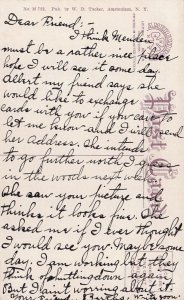 No 31723. Pub. by W. D. Tucker, Amsterdam, N. Y.
Dear Friend: -
I think
must be a rather nice place
hope I will see it some day.
Albert my friend says she
would like to exchange
cards with you if you care to
let me know and I will send
her address. She intends
to go further north I guess
in the woods next while
She saw your picture and
thinks it looks fine. She
asked me if I ever thought
I would see you. Maybe some
day. I am working but they
think shutting down again
But I ain't worrying about it.
Post Card